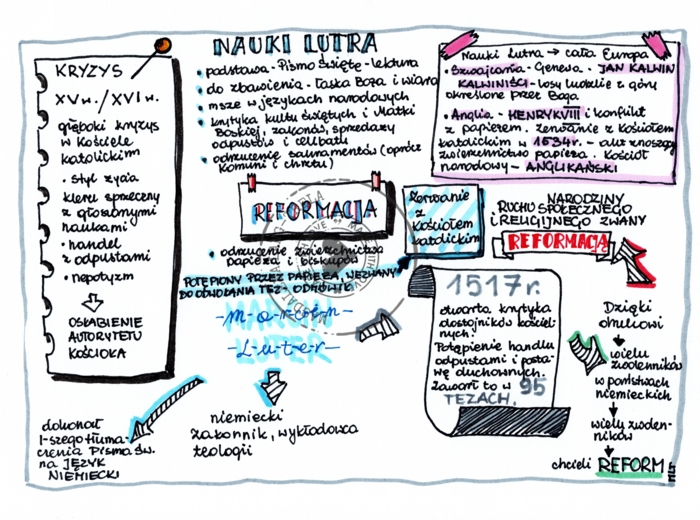 KRYZYS
XV w. / XVI w.
głęboki kryzys
w Kościele
katolickim
• styl życia
kleru sprzeczny
z głoszonymi
naukami
• handel
z odpustami
• nepotyzm
OSŁABIENIE
AUTORYTETU
KOŚCIOŁA
NAUKI LUTRA
• podstawa - Pismo święte - lektura
• do zbawienia - łaska Boża i wiara
• msze w językach narodowych
• krytyka kultu świętych i Matki
Boskiej, zakonów, sprzedaży
odpustów i celibatu
• odrzucenie sakramentów (oprócz
Komunii i chrztu)
REFORMACJA
• odrzucenie zwierzchnictwa
papieża i biskupów
zerwanie
z
Kościołem
katolickim
Nauki Lutra → cała Europa
• Szwajcaria - Genewa - JAN KALWIN
KALWINIŚCI - losy ludzkie z góry
określone przez Boga
• Anglia - HENRYK VIII i konflikt
z papieżem. Zerwanie z Kościołem
katolickim w 1534 r. - akt znoszący
zwierzchnictwo papieża. Kościół
narodowy - ANGLIKAŃSKI
NARODZINY
RUCHU SPOŁECZNEGO
I RELIGIJNEGO ZWANY
REFORMACJĄ
POTĘPIONY PRZEZ PAPIEŻA, WEZWANY
DO ODWOŁANIA TEZ - ODMÓWIŁ
MARCIN
LUTER
1517 r.
otwarta krytyka
dostojników kościel-
nych.
Potępienie handlu
odpustami i posta-
wę duchownych.
Zawarł to w 95
TEZACH.
Dzięki
drukowi
wielu
zwolenników
w państwach
niemieckich
wielu zwolen-
ników
chcieli REFORM
dokonał
I-szego tłuma-
czenia Pisma Św.
na JĘZYK
NIEMIECKI
niemiecki
zakonnik, wykładowca
teologii